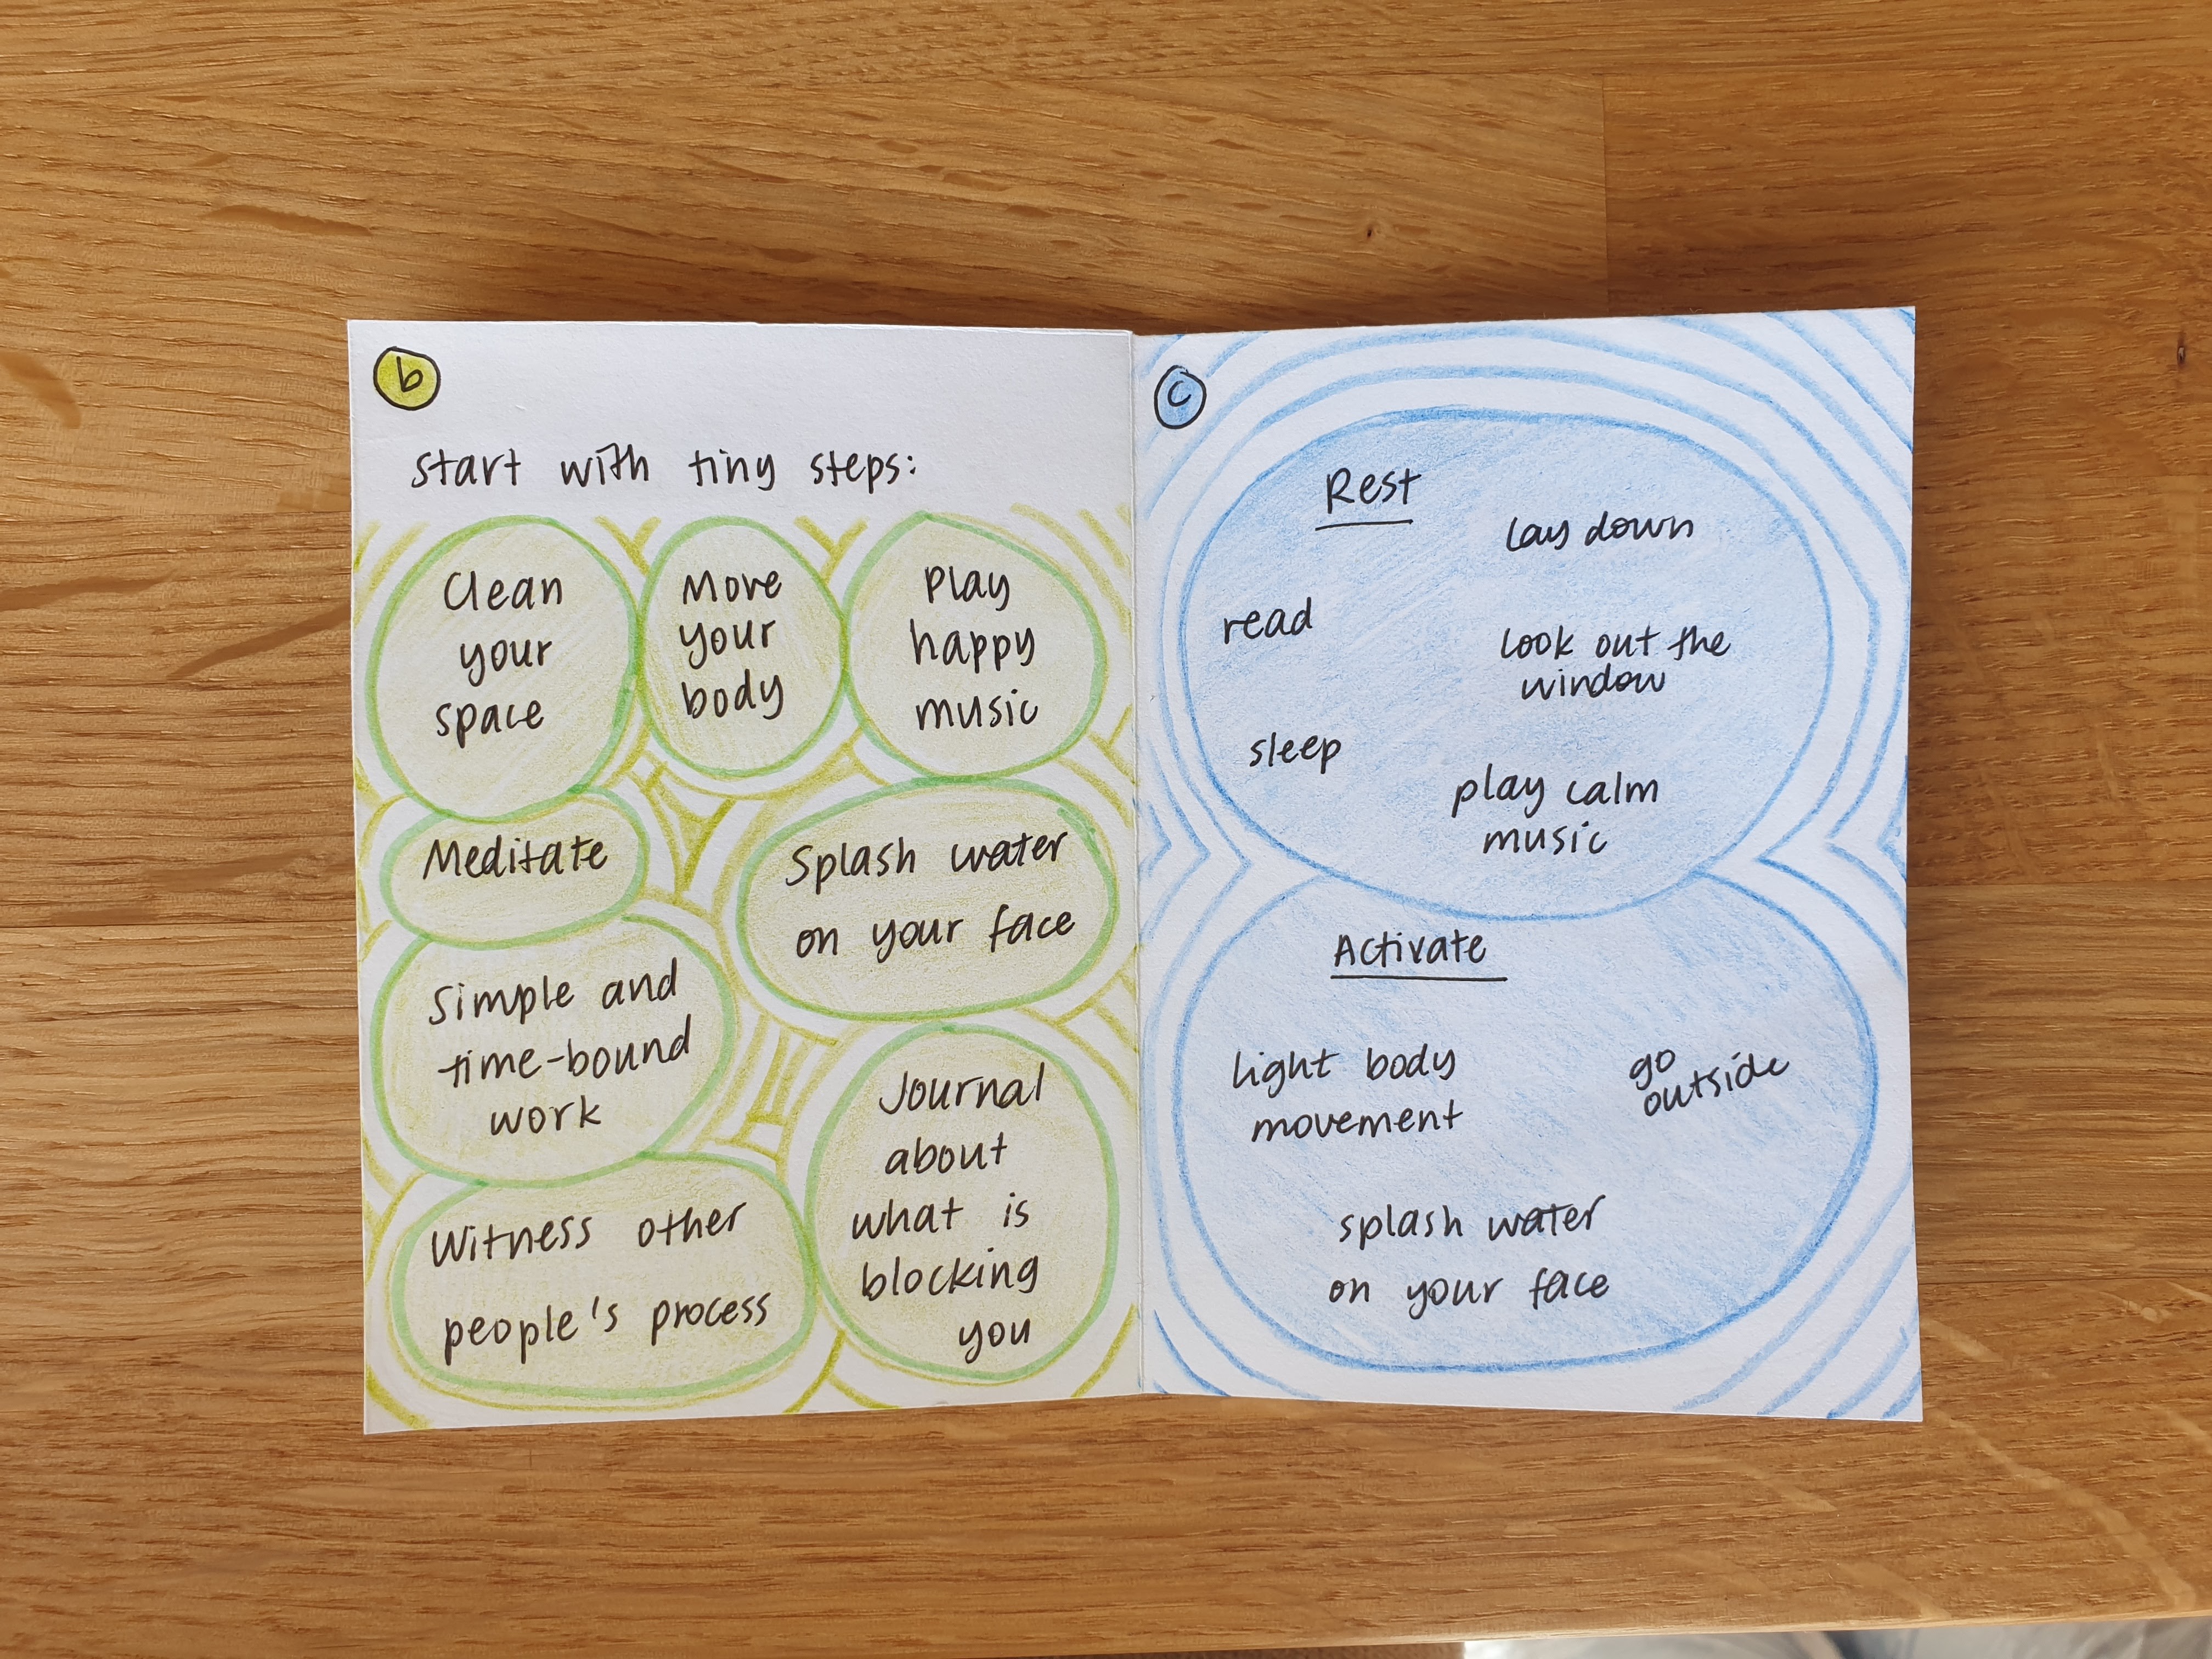 b
start with tiny steps:
Clean
your
space
Move
your
body
Play
happy
music
Meditate
Splash water
on your face
Simple and
time-bound
work
Journal
about
what is
blocking
you
Witness other
people's process
c
Rest
lay down
read
look out the
window
sleep
play calm
music
Activate
light body
movement
go
outside
splash water
on your face